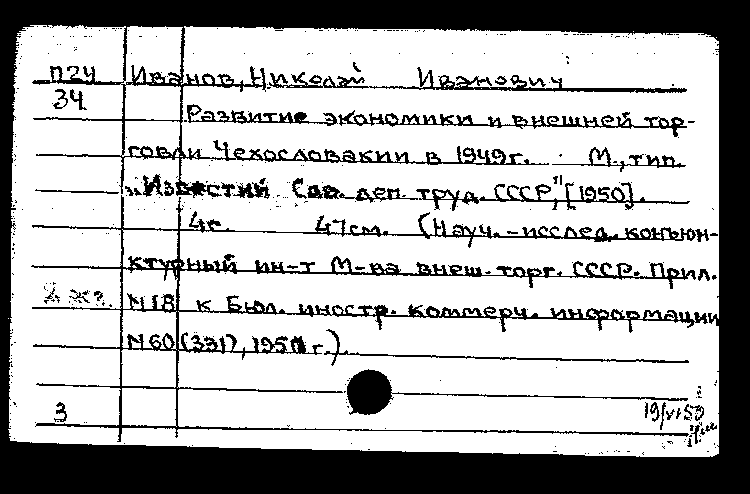 П24 Иванов, Николай Иванович
34 Развитие экономики и внешней тор-
говли Чехословакии в 1949г. М., тип.
„Известий Сов. деп. труд. СССР", [1950].
4с. 47см. (Науч.-исслед. конъюн-
ктурный ин-т М-ва внеш. торг. СССР. Прил.
№18 к Бюл. иностр. коммерч. информации
№60 (331), 1950 г.).
3 19/VI 50